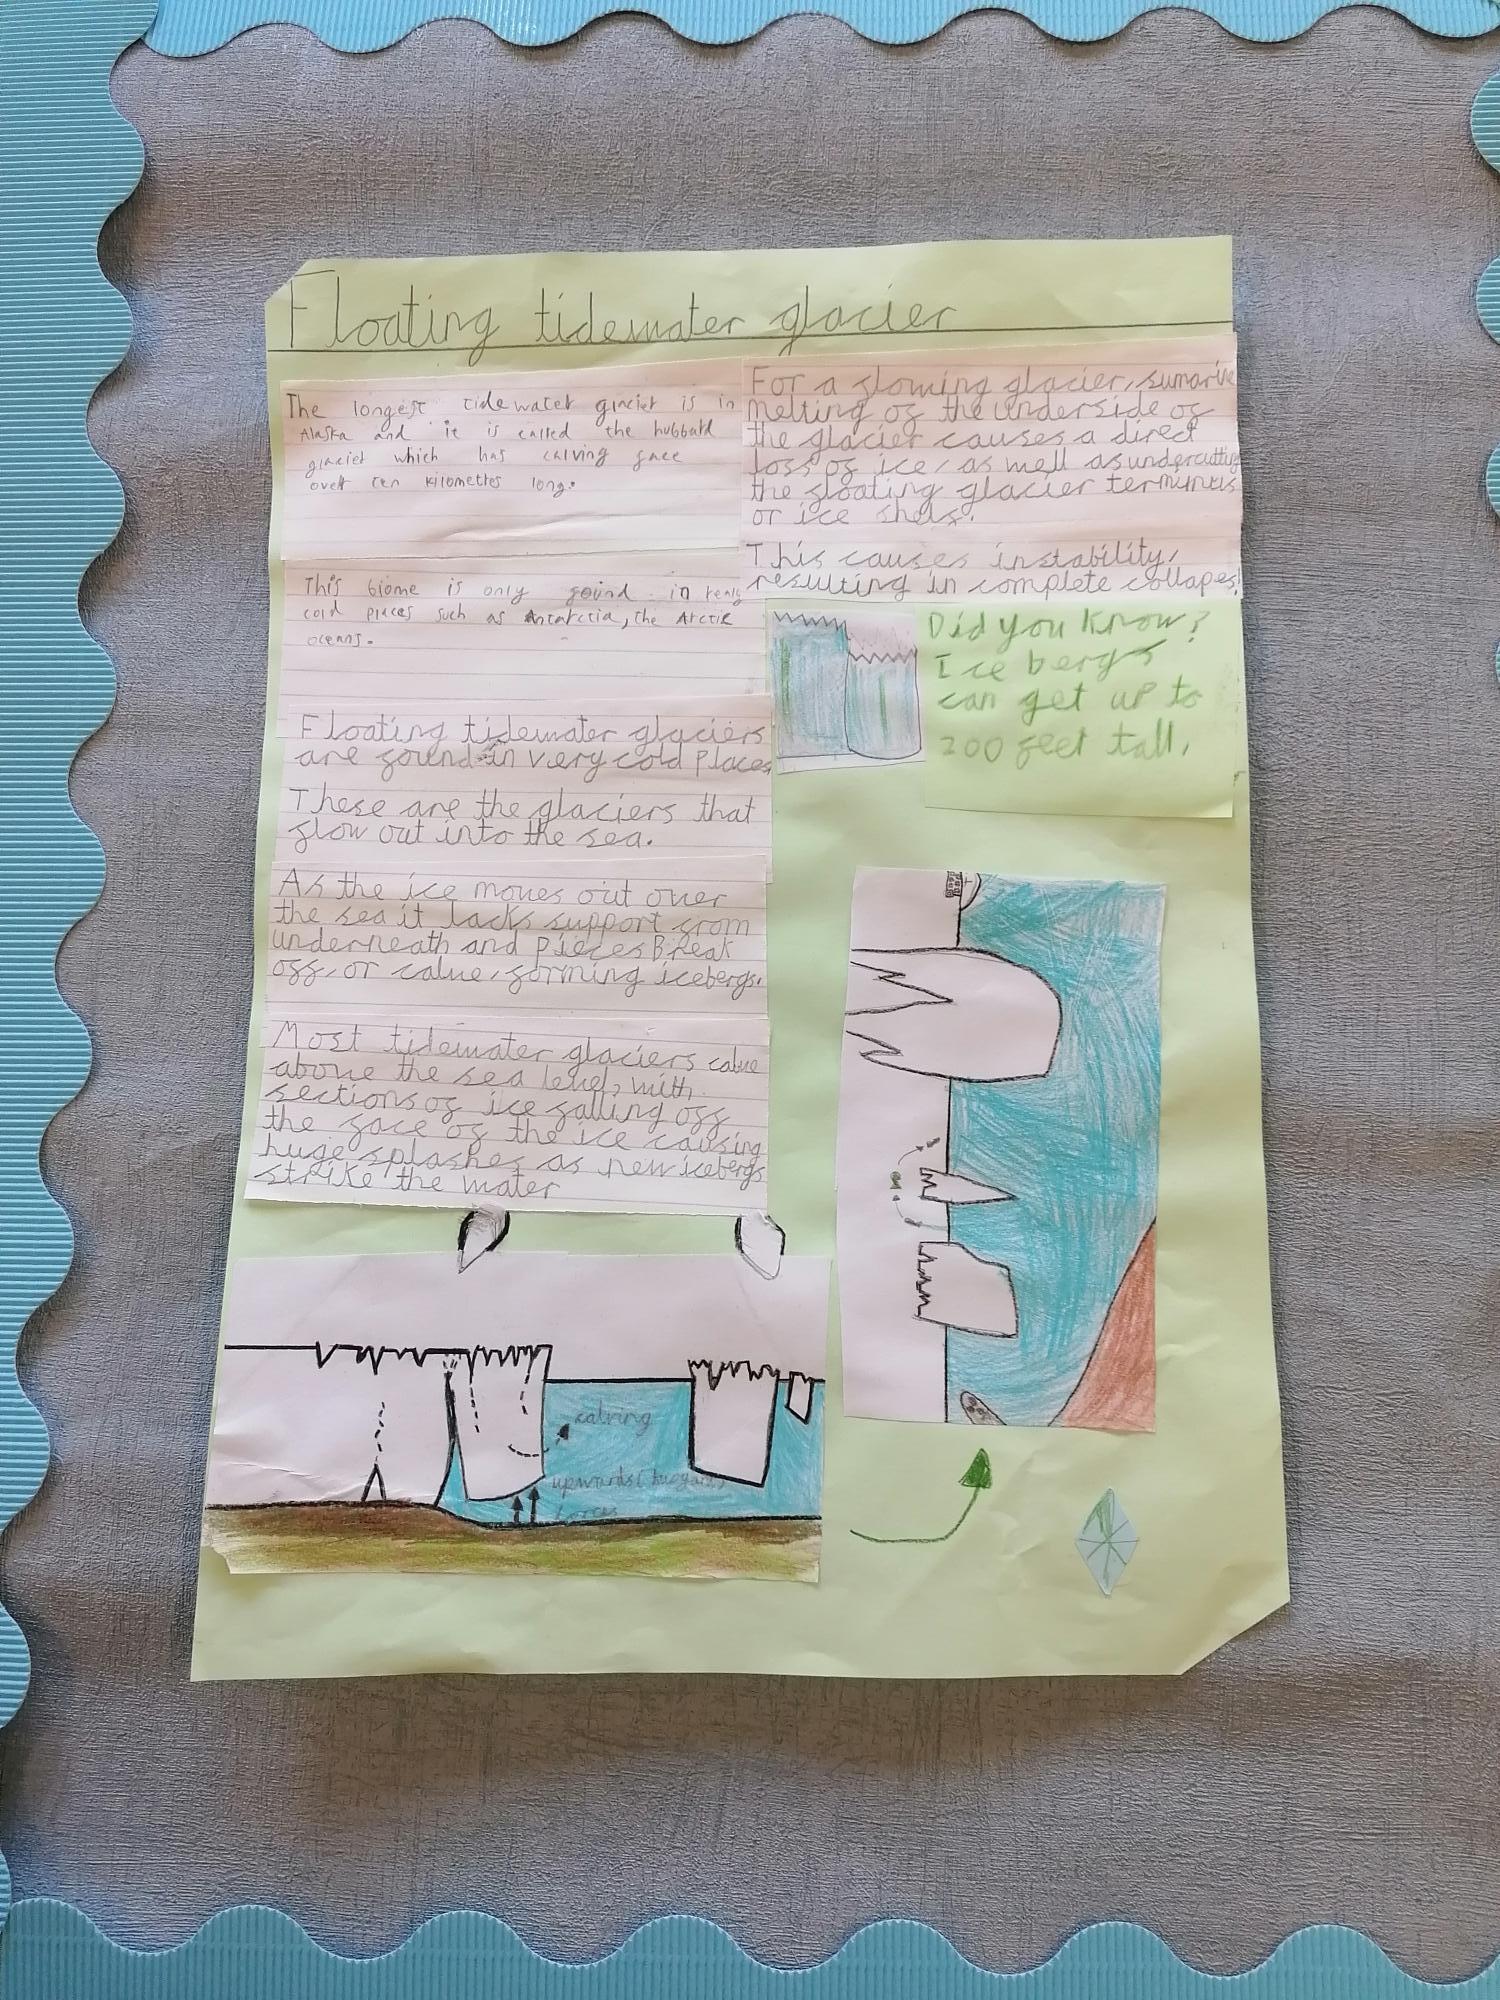 Floating tidewater glacier
The longest tidewater glacier is in
Alaska and it is called the hubbard
glacier which has calving face
over ten kilometres long.
This biome is only found in realy
cold places such as Antarctia, the Arctic
oceans.
Floating tidewater glaciers
are found in very cold places
These are the glaciers that
flow out into the sea.
As the ice moves out over
the sea it lacks support from
underneath and pieces Break
off, or calve, forming icebergs.
Most tidewater glaciers calve
above the sea level, with
sections of ice falling off
the face of the ice causing
huge splashes as new icebergs
strike the water
For a flowing glacier, sumarine
melting of the underside of
the glacier causes a direct
loss of ice, as well as undercutting
the floating glacier terminus
or ice shelf.
This causes instability,
resulting in complete collapes!
Did you know?
Ice bergs
can get up to
200 feet tall.
calving
upwards (buoyant)
forces